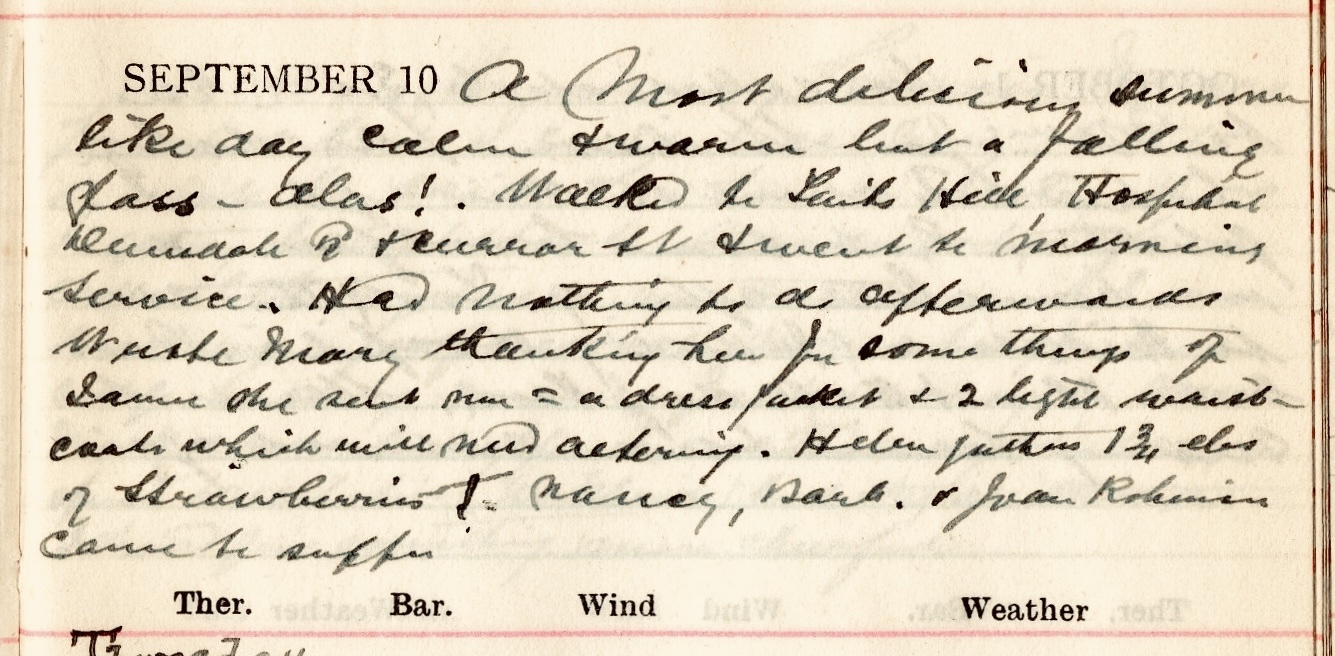 SEPTEMBER 10 A most delicious summer
like day calm & warm but a falling
glass - alas! . Walked to Hill, Hospital
Rd & St & went to morning
service. Had nothing to do afterwards
Wrote Mary thanking her for some things of
she sent me = a dress jacket & 2 light waist-
coats which will need altering. Helen gathers 1¾ lbs
of Strawberries. Nancy, Barb. & Joan Robinson
came to supper
Ther. Bar. Wind Weather